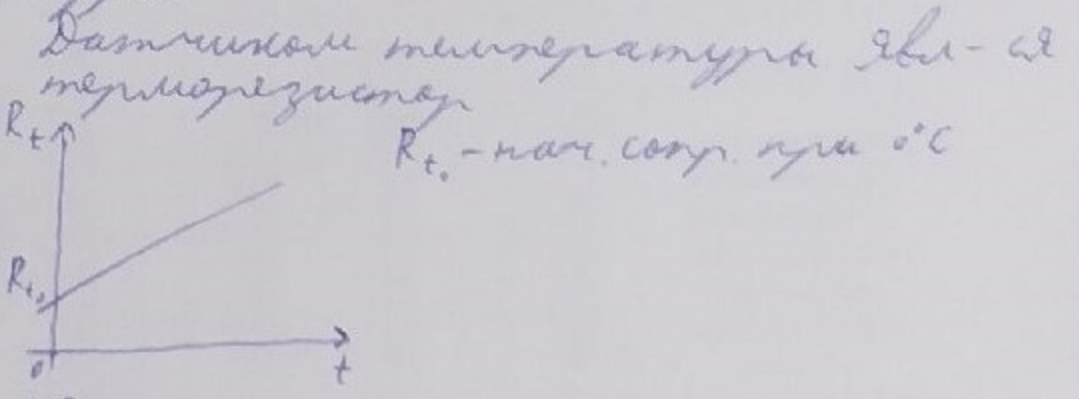 Датчиком температуры явл-ся
терморезистор
R_t
R_t₀ - нач. сопр. при 0°C
R_t₀
0
t